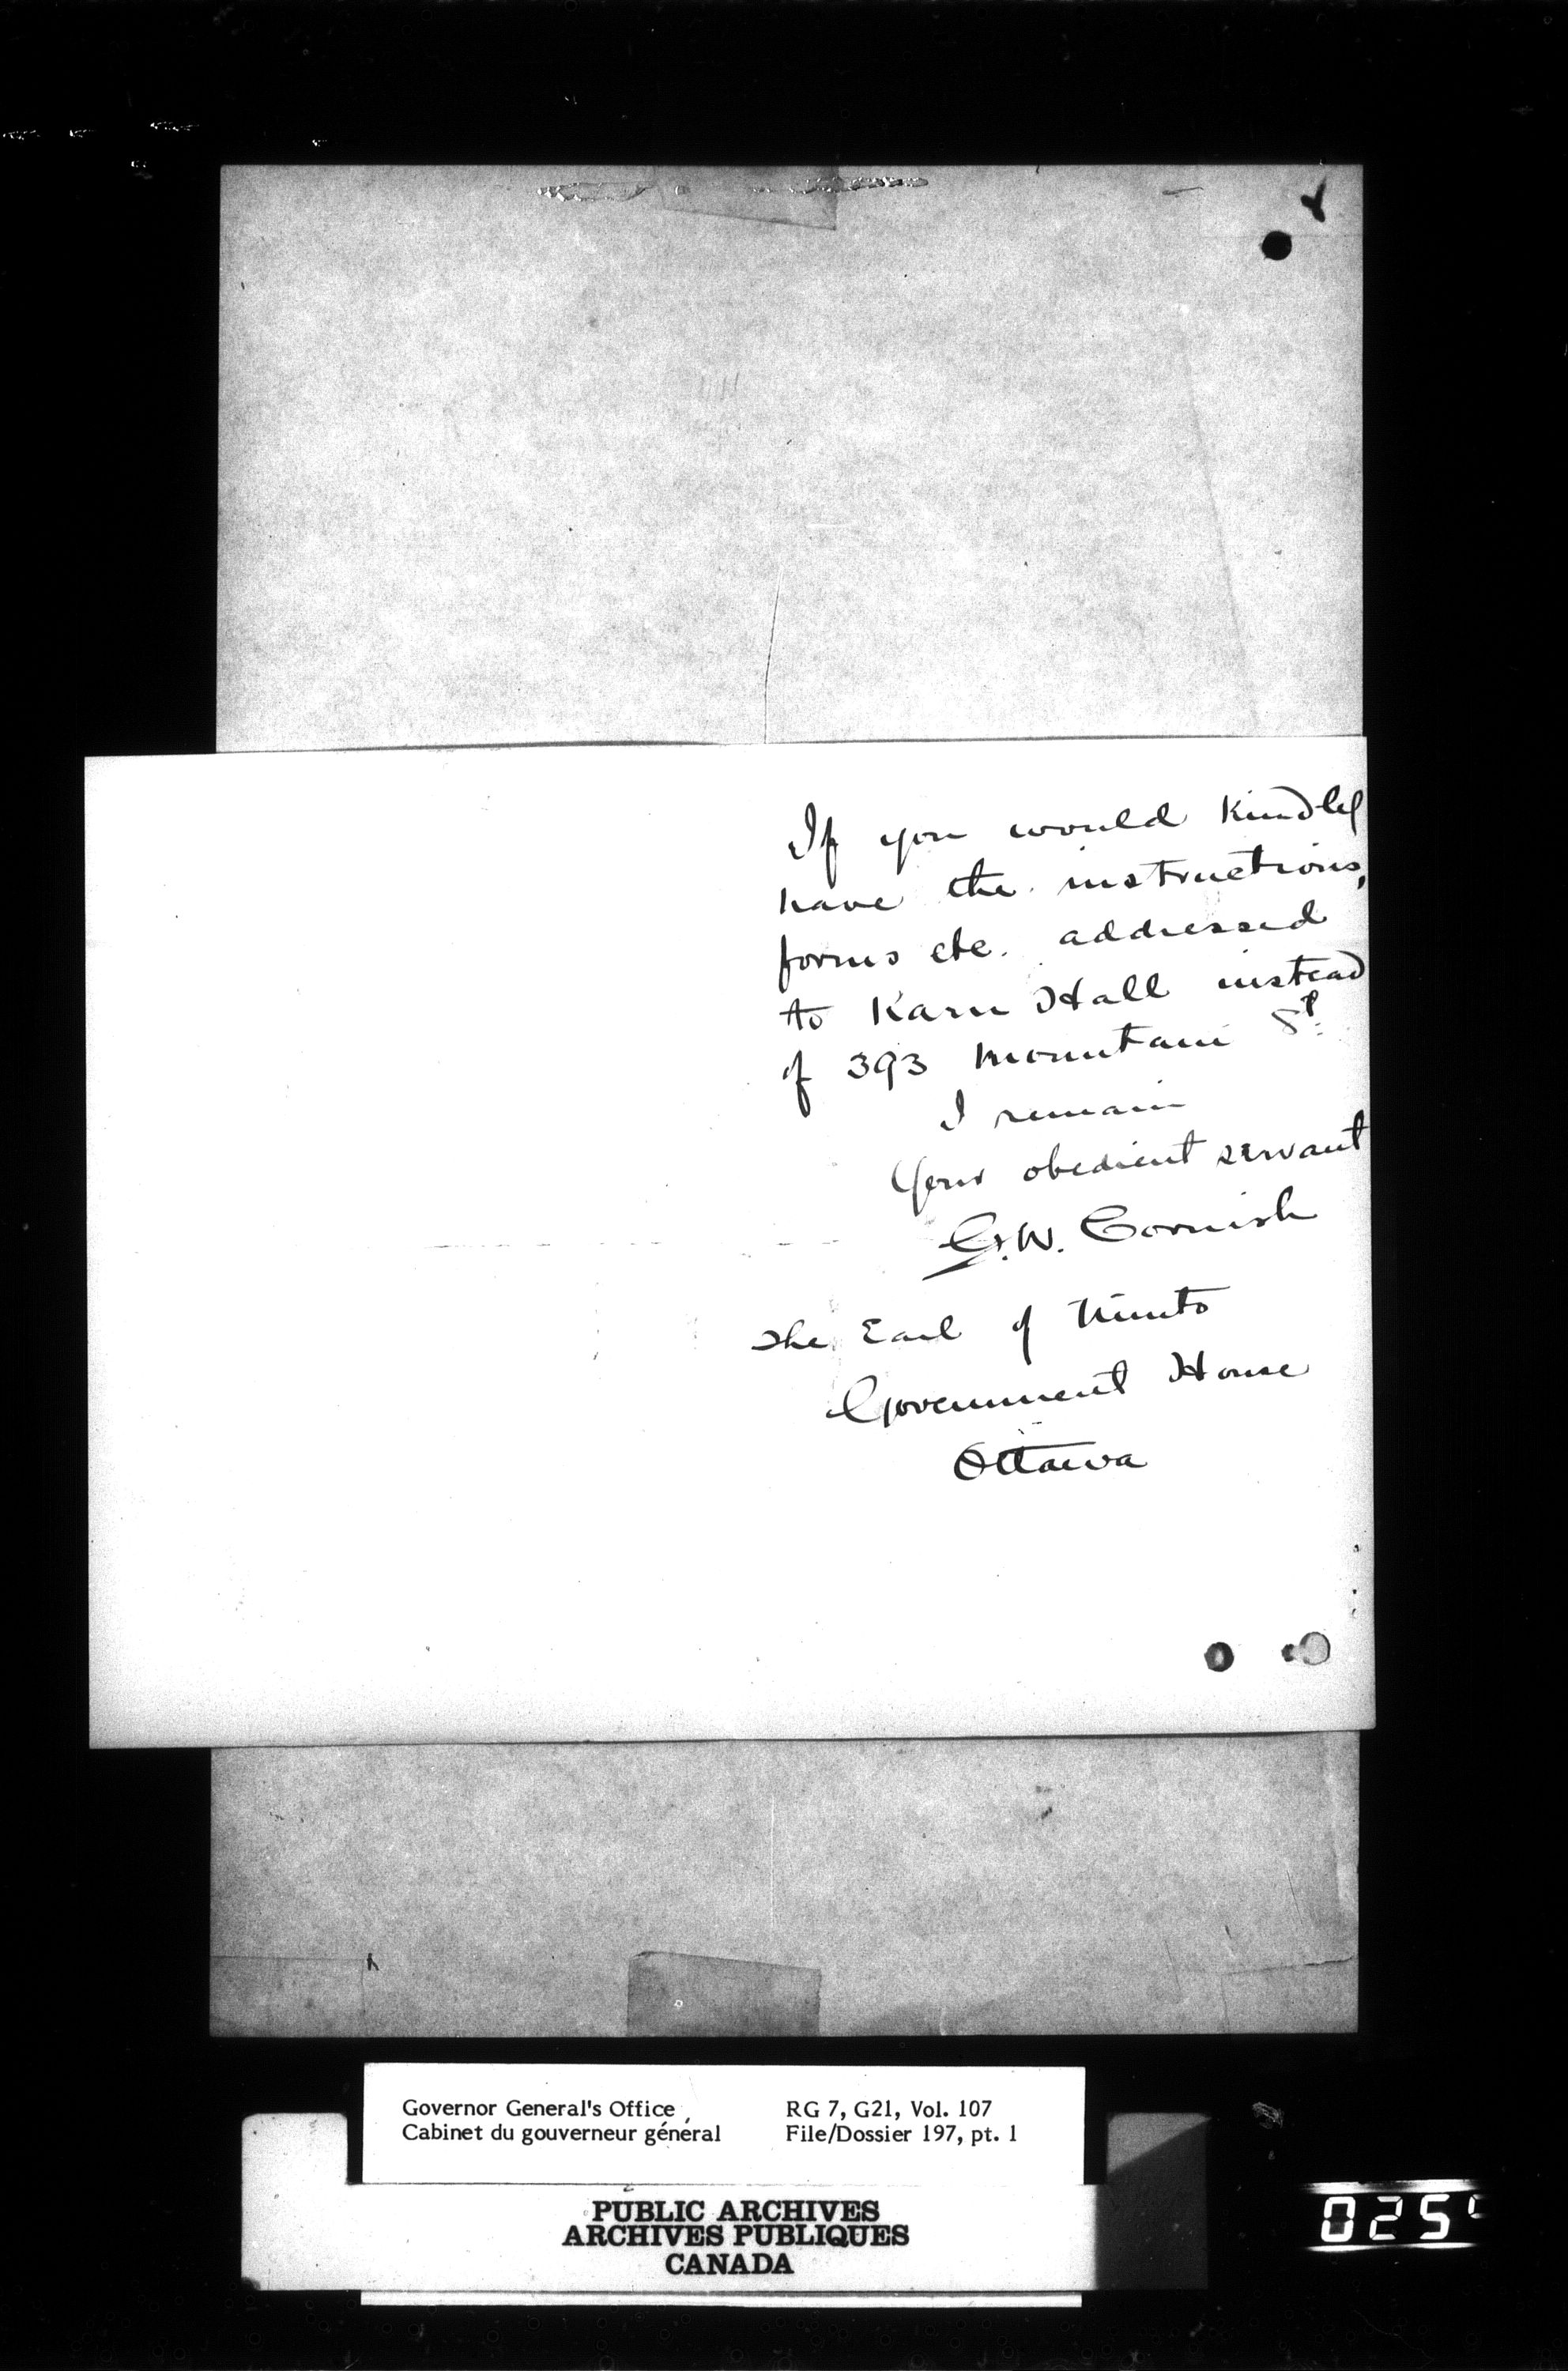 If you would kindly
have the instructions,
forms etc. addressed
to Karn Hall instead
of 393 Mountain St.
I remain
Your obedient servant
G.W. Cornish
The Earl of Minto
Government House
Ottawa
Governor General's Office
Cabinet du gouverneur général
RG 7, G21, Vol. 107
File/Dossier 197, pt. 1
PUBLIC ARCHIVES
ARCHIVES PUBLIQUES
CANADA